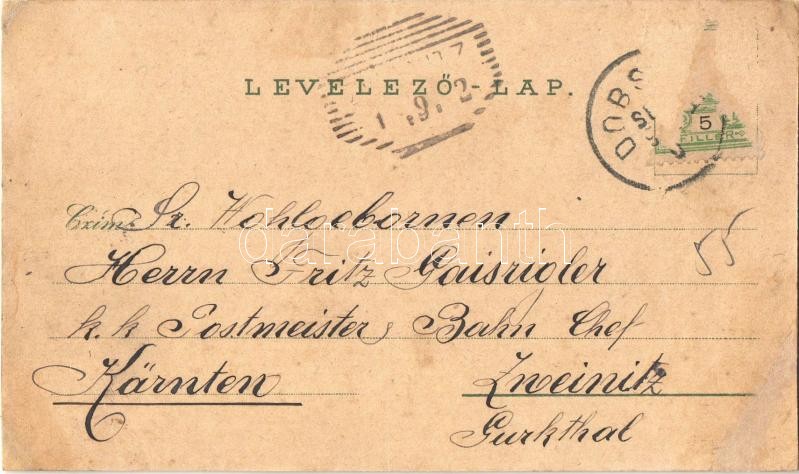 LEVELEZŐ-LAP.
DOBS
5
FILLER
1 .9. 2
55
Czím: Sr. Wohlgebornen
Herrn Fritz Gaisrigler
k. k Postmeister, Bahn Chef
Kärnten Zweinitz
Gurkthal
darabanth